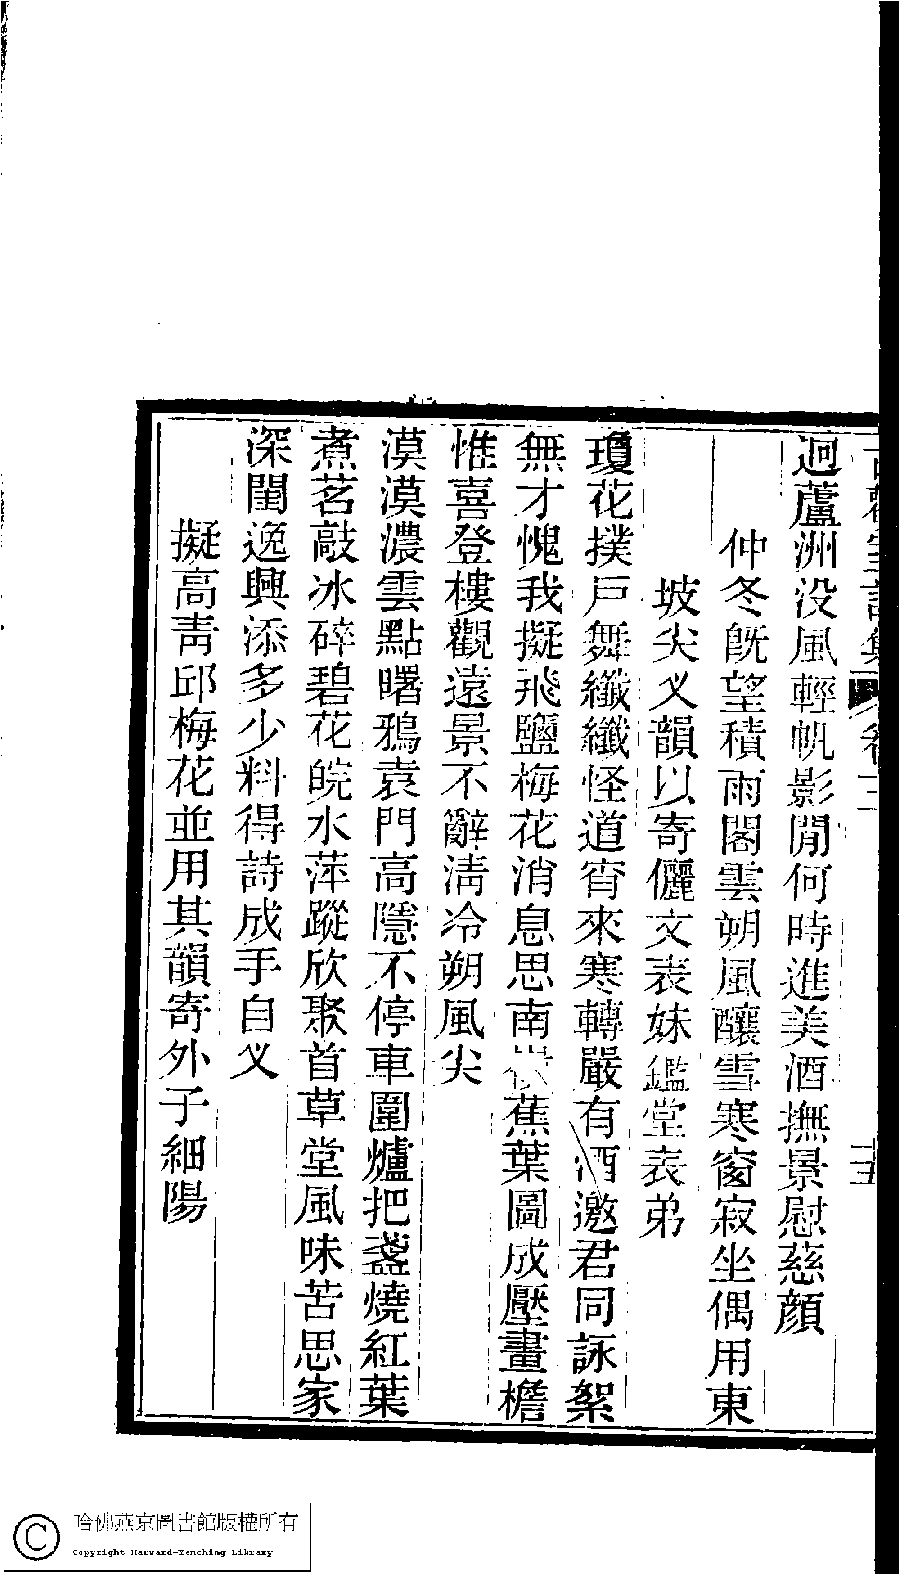 迥蘆洲没風輕帆影閒何時進美酒撫景慰慈顔
仲冬旣望積雨閣雲朔風釀雪寒窗寂坐偶用東
坡尖义韻以寄儷文表妹鑑堂表弟
瓊花撲戸舞纖纖怪道宵來寒轉嚴有酒邀君同詠絮
無才愧我擬飛鹽梅花消息思南嶺蕉葉圖成壓畫檐
惟喜登樓觀遠景不辭淸冷朔風尖
漠漠濃雲點曙鴉袁門高隱不停車圍爐把盞燒紅葉
煮茗敲冰碎碧花皖水萍蹤欣聚首草堂風味苦思家
深閨逸興添多少料得詩成手自义
擬高靑邱梅花並用其韻寄外子細陽
十五
哈佛燕京圖書館版權所有
Copyright Harvard-Yenching Library